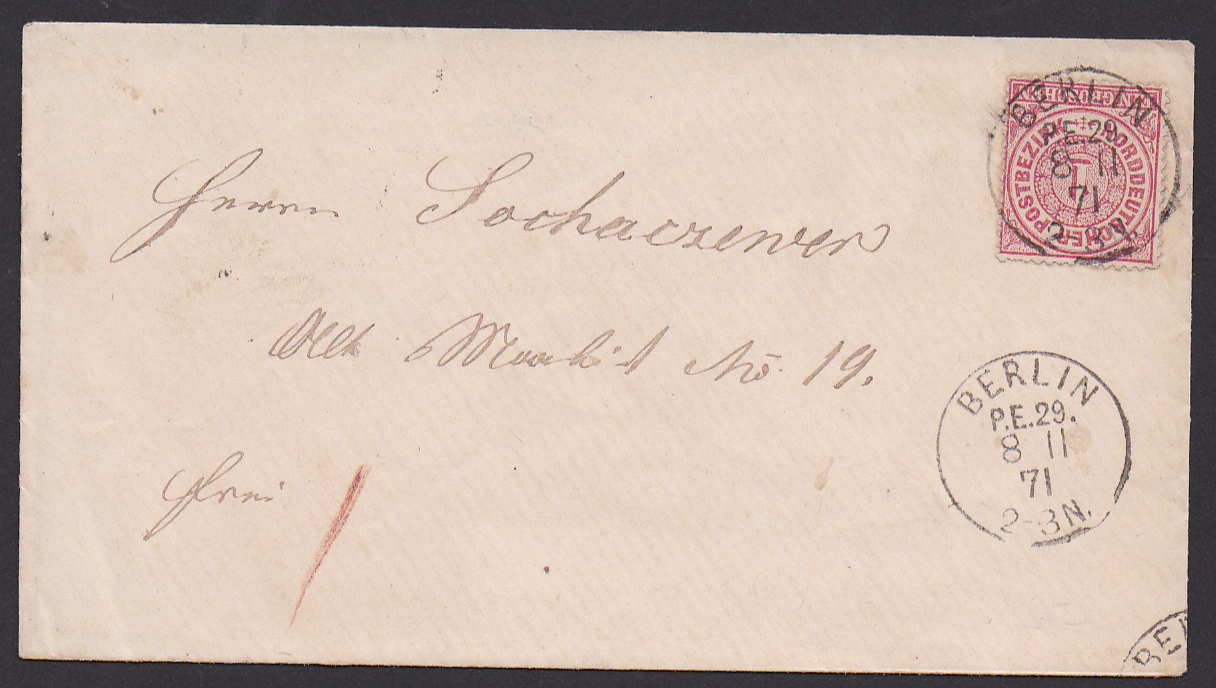 Herrn Sochaczewer
Alt Moabit No 19.
frei
NORDDEUTSCHER POSTBEZIRK
1
BERLIN
P.E.29.
8 11
71
2-3N.
BERLIN
P.E.29.
8 11
71
2-3N.
BE